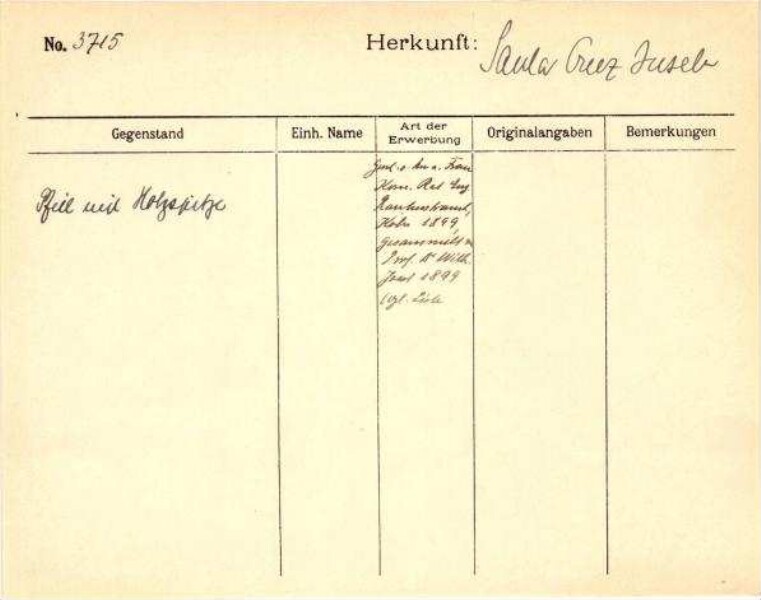 No. 3715
Herkunft: Santa Cruz Inseln
Gegenstand
Einh. Name
Art der Erwerbung
Originalangaben
Bemerkungen
Pfeil mit Holzspitze
Gesch. v. Frau
Kom. Rat Eug.
Rautenstrauch,
Köln 1899,
gesammelt v.
Prof. Dr Wilh.
Joest 1899
vgl. Liste